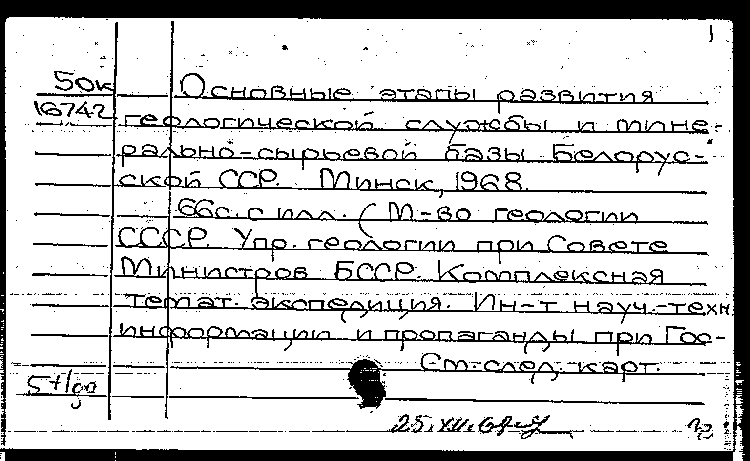 1
50к Основные этапы развития
16742 геологической службы и мине-
рально-сырьевой базы Белорус-
ской ССР. Минск, 1968.
66с. с илл. (М-во геологии
СССР. Упр. геологии при Совете
Министров БССР. Комплексная
темат. экспедиция. Ин-т науч.-техн
информации и пропаганды при Гос-
См. след. карт.
25.XII.68